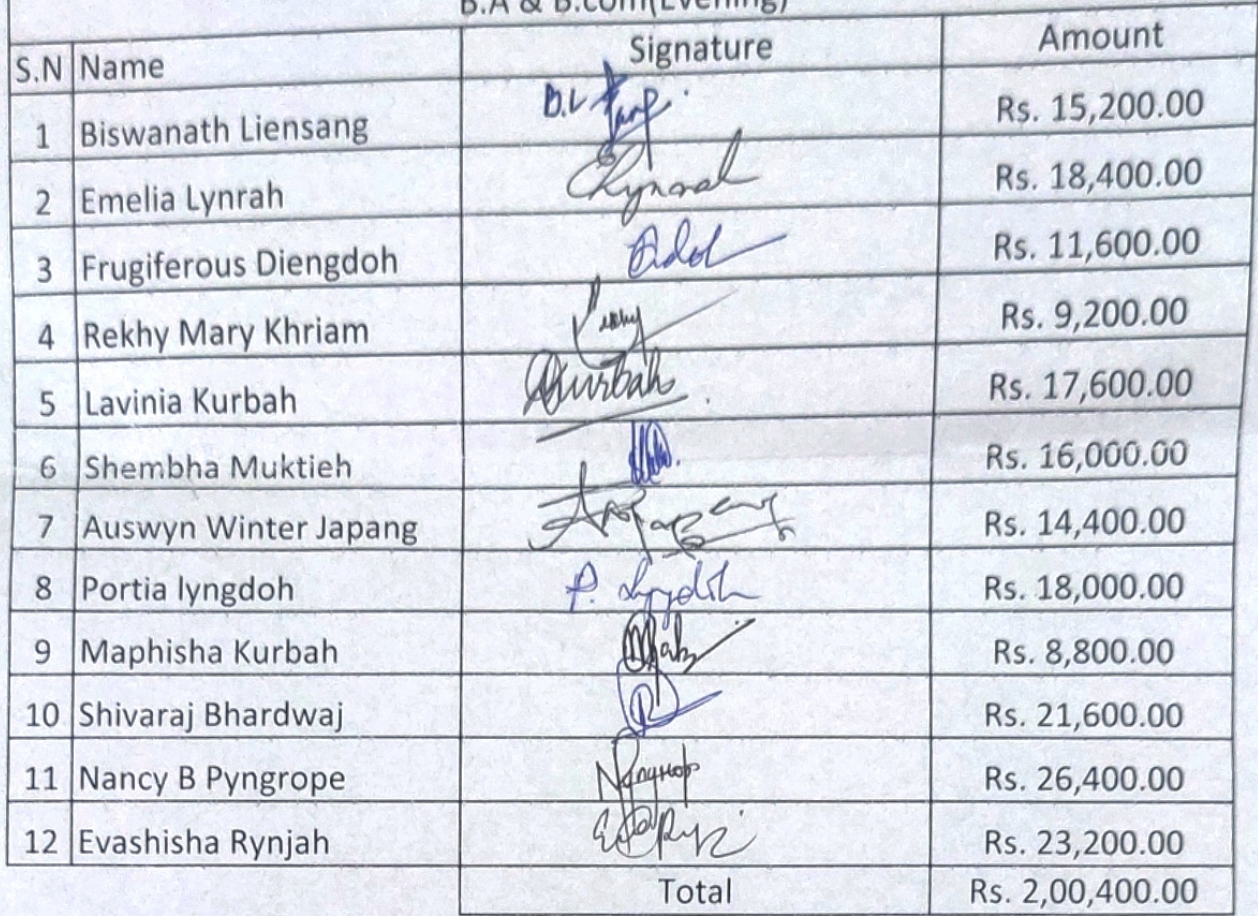 B.A & B.com(Evening)
S.N Name Signature Amount
1 Biswanath Liensang B.L Rs. 15,200.00
2 Emelia Lynrah Rs. 18,400.00
3 Frugiferous Diengdoh Rs. 11,600.00
4 Rekhy Mary Khriam Rs. 9,200.00
5 Lavinia Kurbah Kurbah Rs. 17,600.00
6 Shembha Muktieh Rs. 16,000.00
7 Auswyn Winter Japang Rs. 14,400.00
8 Portia lyngdoh P. Lyngdoh Rs. 18,000.00
9 Maphisha Kurbah Rs. 8,800.00
10 Shivaraj Bhardwaj Rs. 21,600.00
11 Nancy B Pyngrope Rs. 26,400.00
12 Evashisha Rynjah Rs. 23,200.00
Total Rs. 2,00,400.00